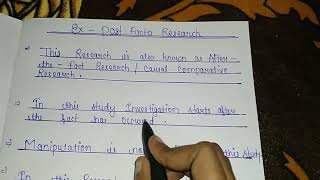 Ex - Post Facto Research
→ This Research is also known as After -
the - Fact Research / Causal Comparative
Research .
→ In this study Investigation starts after
the fact has occured .
→ Manipulation is this study
→ In this